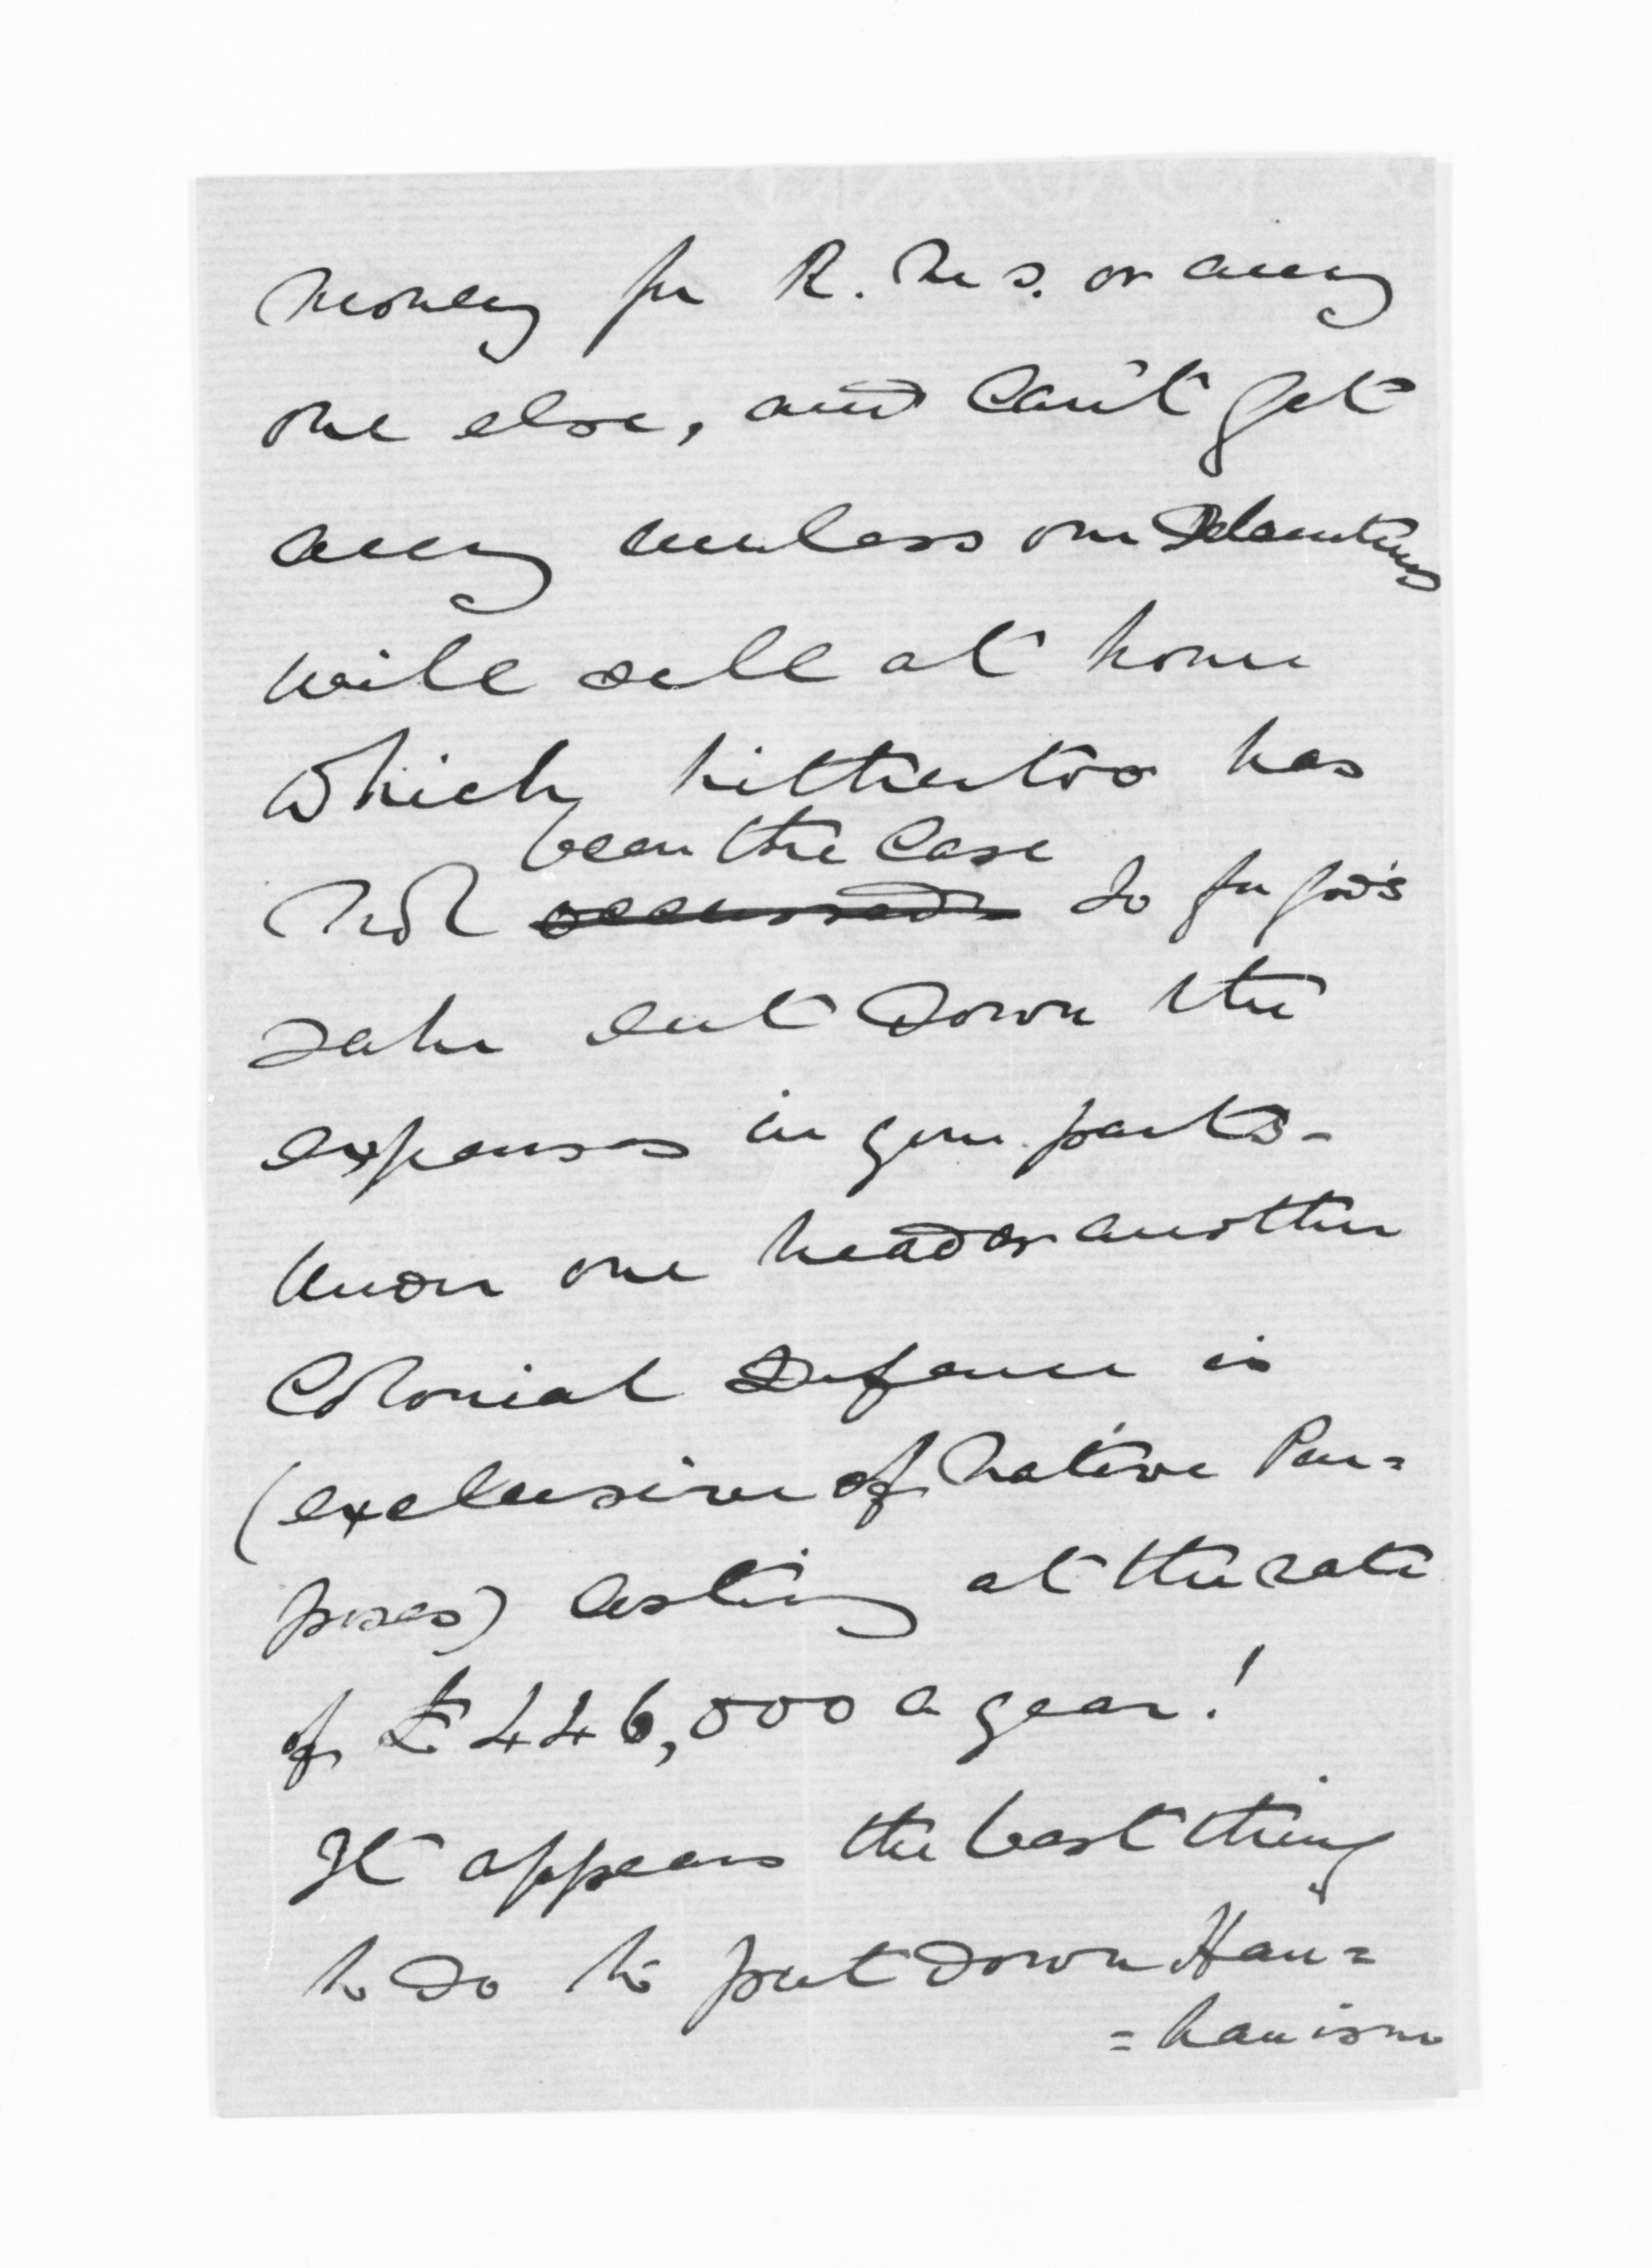 money for R. Ms. or any
one else, and can't get
any unless our Debentures
will sell at home
which hithertoo has
been the case
not occurred So for God's
sake cut down the
expenses in your parts-
Under one head or another
Colonial Defence is
(exclusive of Native Pur=
poses) costing at the rate
of £446,000 a year!
It appears the best thing
to do to put down Hau=
=hauism